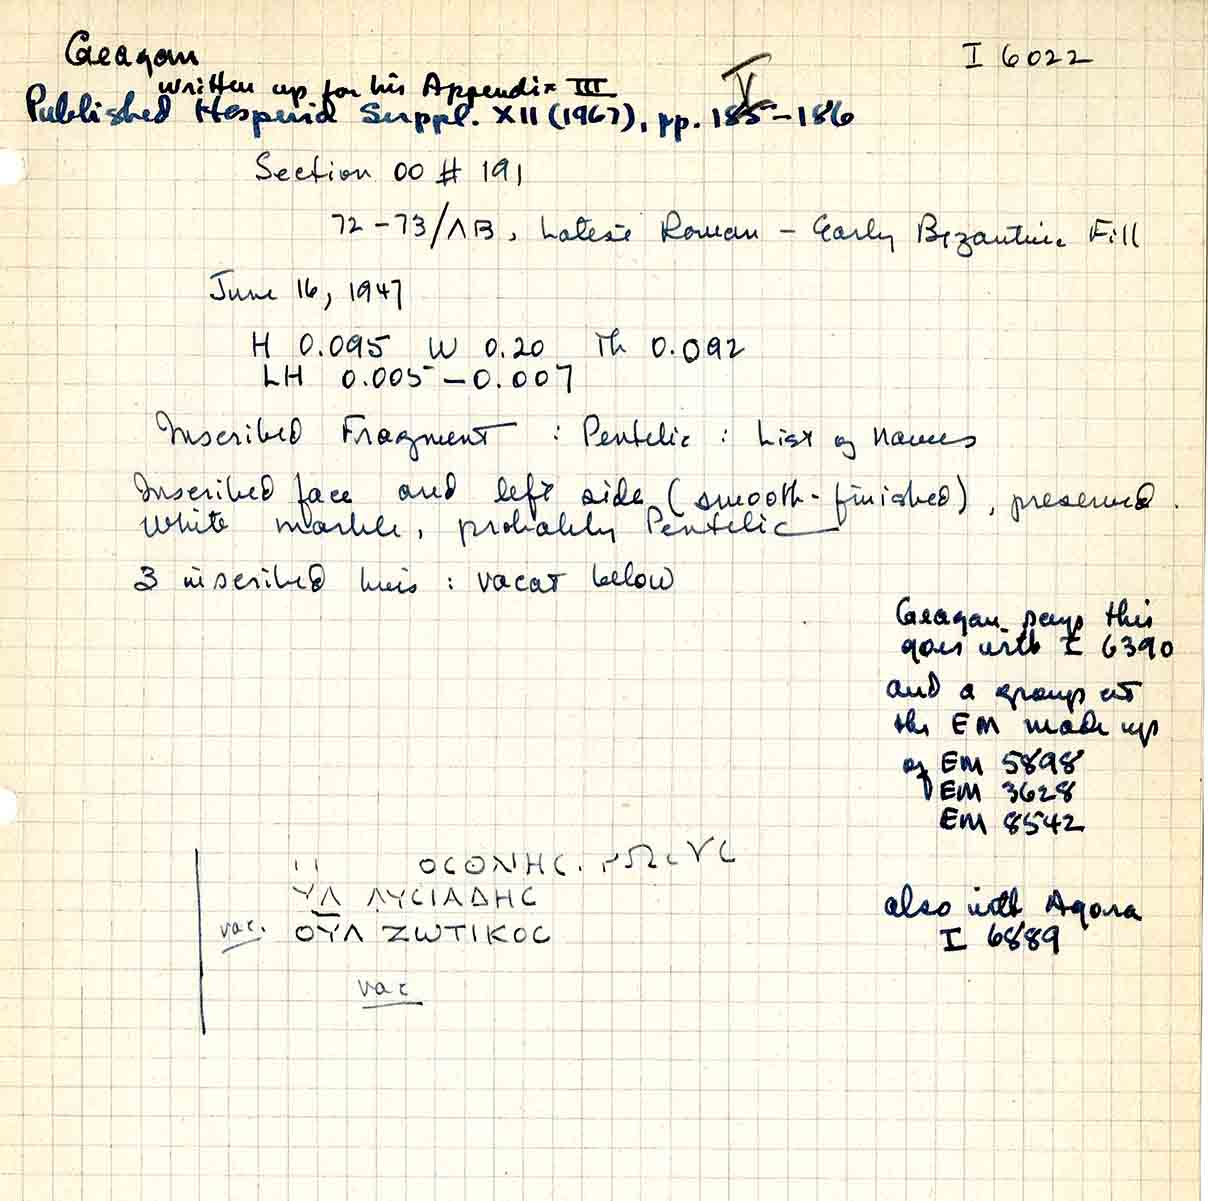 Geagan
I 6022
written up for his Appendix III
V
Published Hesperia Suppl. XII (1967), pp. 185-186
Section OO # 191
72-73/ΛΒ, Latest Roman - Early Byzantine Fill
June 16, 1947
H 0.095 W 0.20 Th 0.092
LH 0.005 - 0.007
Inscribed Fragment : Pentelic : List of names
Inscribed face and left side (smooth-finished), preserved.
White marble, probably Pentelic
3 inscribed lines : vacat below
Geagan says this
goes with I 6390
and a group at
the EM made up
of EM 5898
EM 3628
EM 8542
ΟϹΟΝΗϹ
ΥΛ ΛΥϹΙΑΔΗϹ
vac. ΟΥΛ ΖΩΤΙΚΟϹ
vac
also with Agora
I 6889